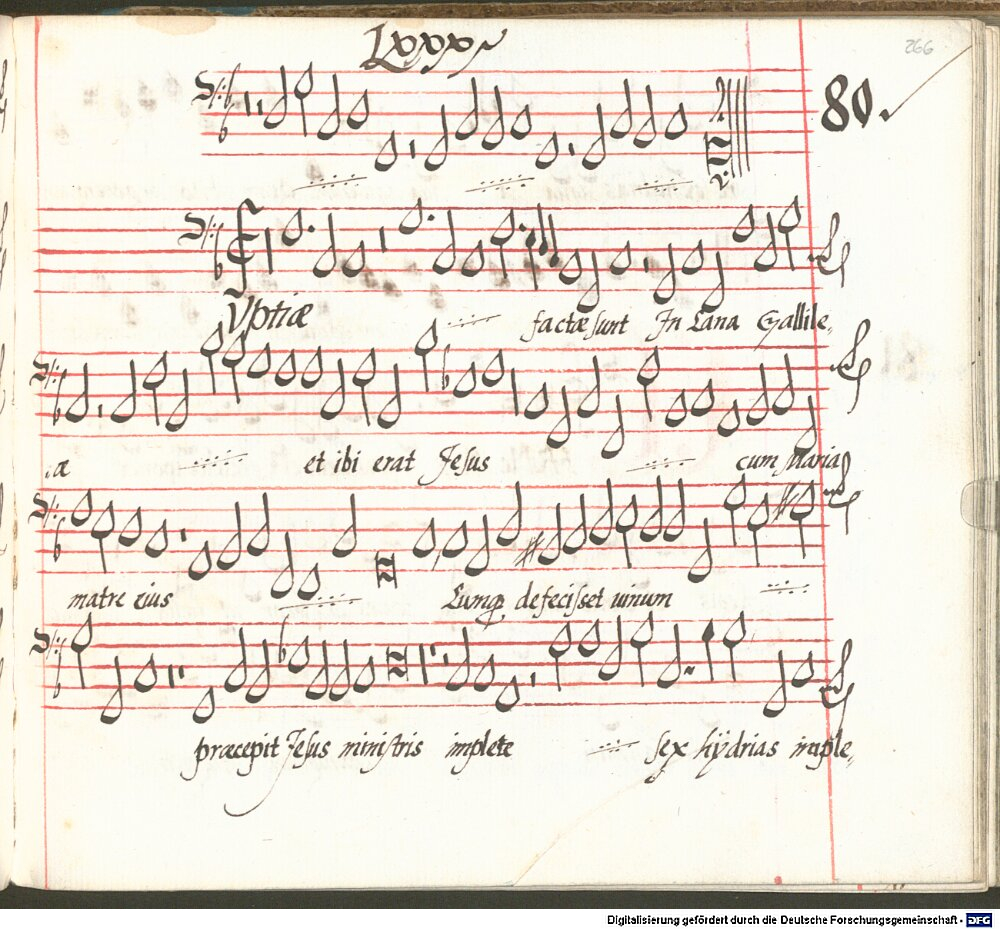 Lxxx
266
80.
Vptiæ factæ sunt In Cana Gallile,,
æ et ibi erat Jesus cum Maria
matre eius Cumq3 defecisset uinum
præcepit Jesus ministris implete sex hÿdrias imple,,
Digitalisierung gefördert durch die Deutsche Forschungsgemeinschaft - DFG